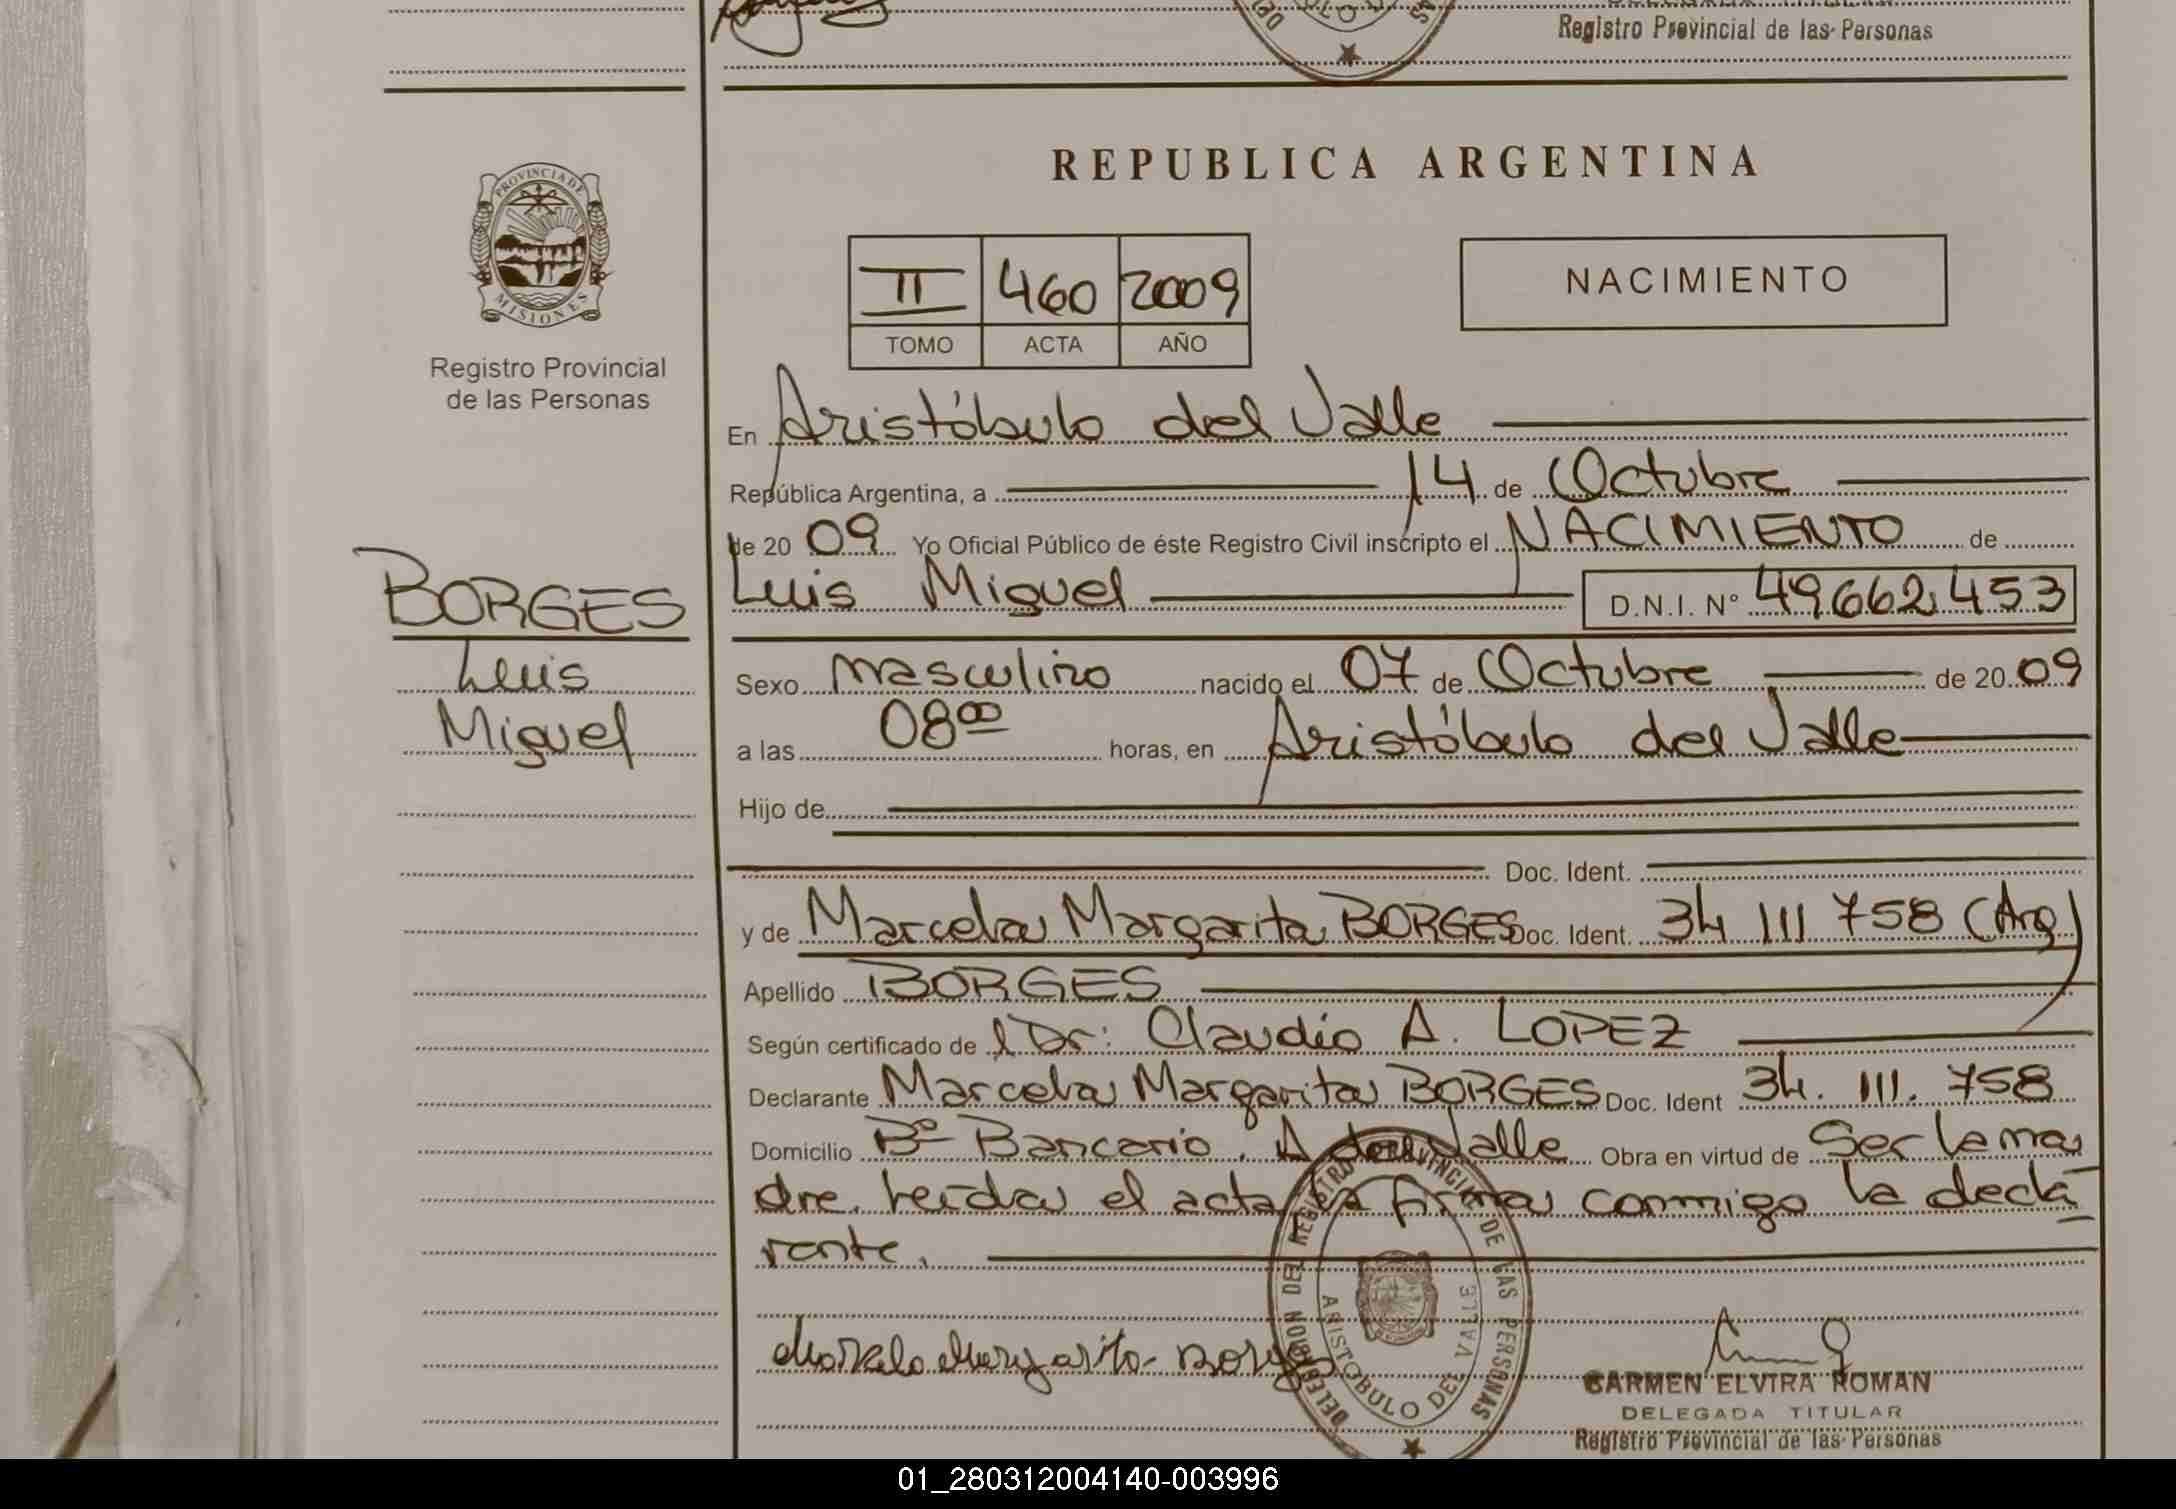 Registro Provincial de las Personas
REPUBLICA ARGENTINA
PROVINCIA DE
MISIONES
Registro Provincial
de las Personas
II 460 2009
TOMO ACTA AÑO
NACIMIENTO
En Aristóbulo del Valle
República Argentina, a 14 de Octubre
de 20 09 Yo Oficial Público de éste Registro Civil inscripto el NACIMIENTO de
Luis Miguel D.N.I. N° 49.662.453
BORGES
Luis
Miguel
Sexo masculino nacido el 07 de Octubre de 20 09
a las 08 00 horas, en Aristóbulo del Valle
Hijo de
Doc. Ident.
y de Marcela Margarita BORGES Doc. Ident. 34 111 758 (Arg)
Apellido BORGES
Según certificado de l Dr: Claudio A. LOPEZ
Declarante Marcela Margarita BORGES Doc. Ident 34. 111. 758
Domicilio Bº Bancario. A del Valle Obra en virtud de Ser la ma
dre. Leída el acta la firma conmigo la decla
rante.
DELEGACION DEL REGISTRO PROVINCIAL DE LAS PERSONAS
ARISTOBULO DEL VALLE
CARMEN ELVIRA ROMAN
DELEGADA TITULAR
Registro Provincial de las Personas
01_280312004140-003996